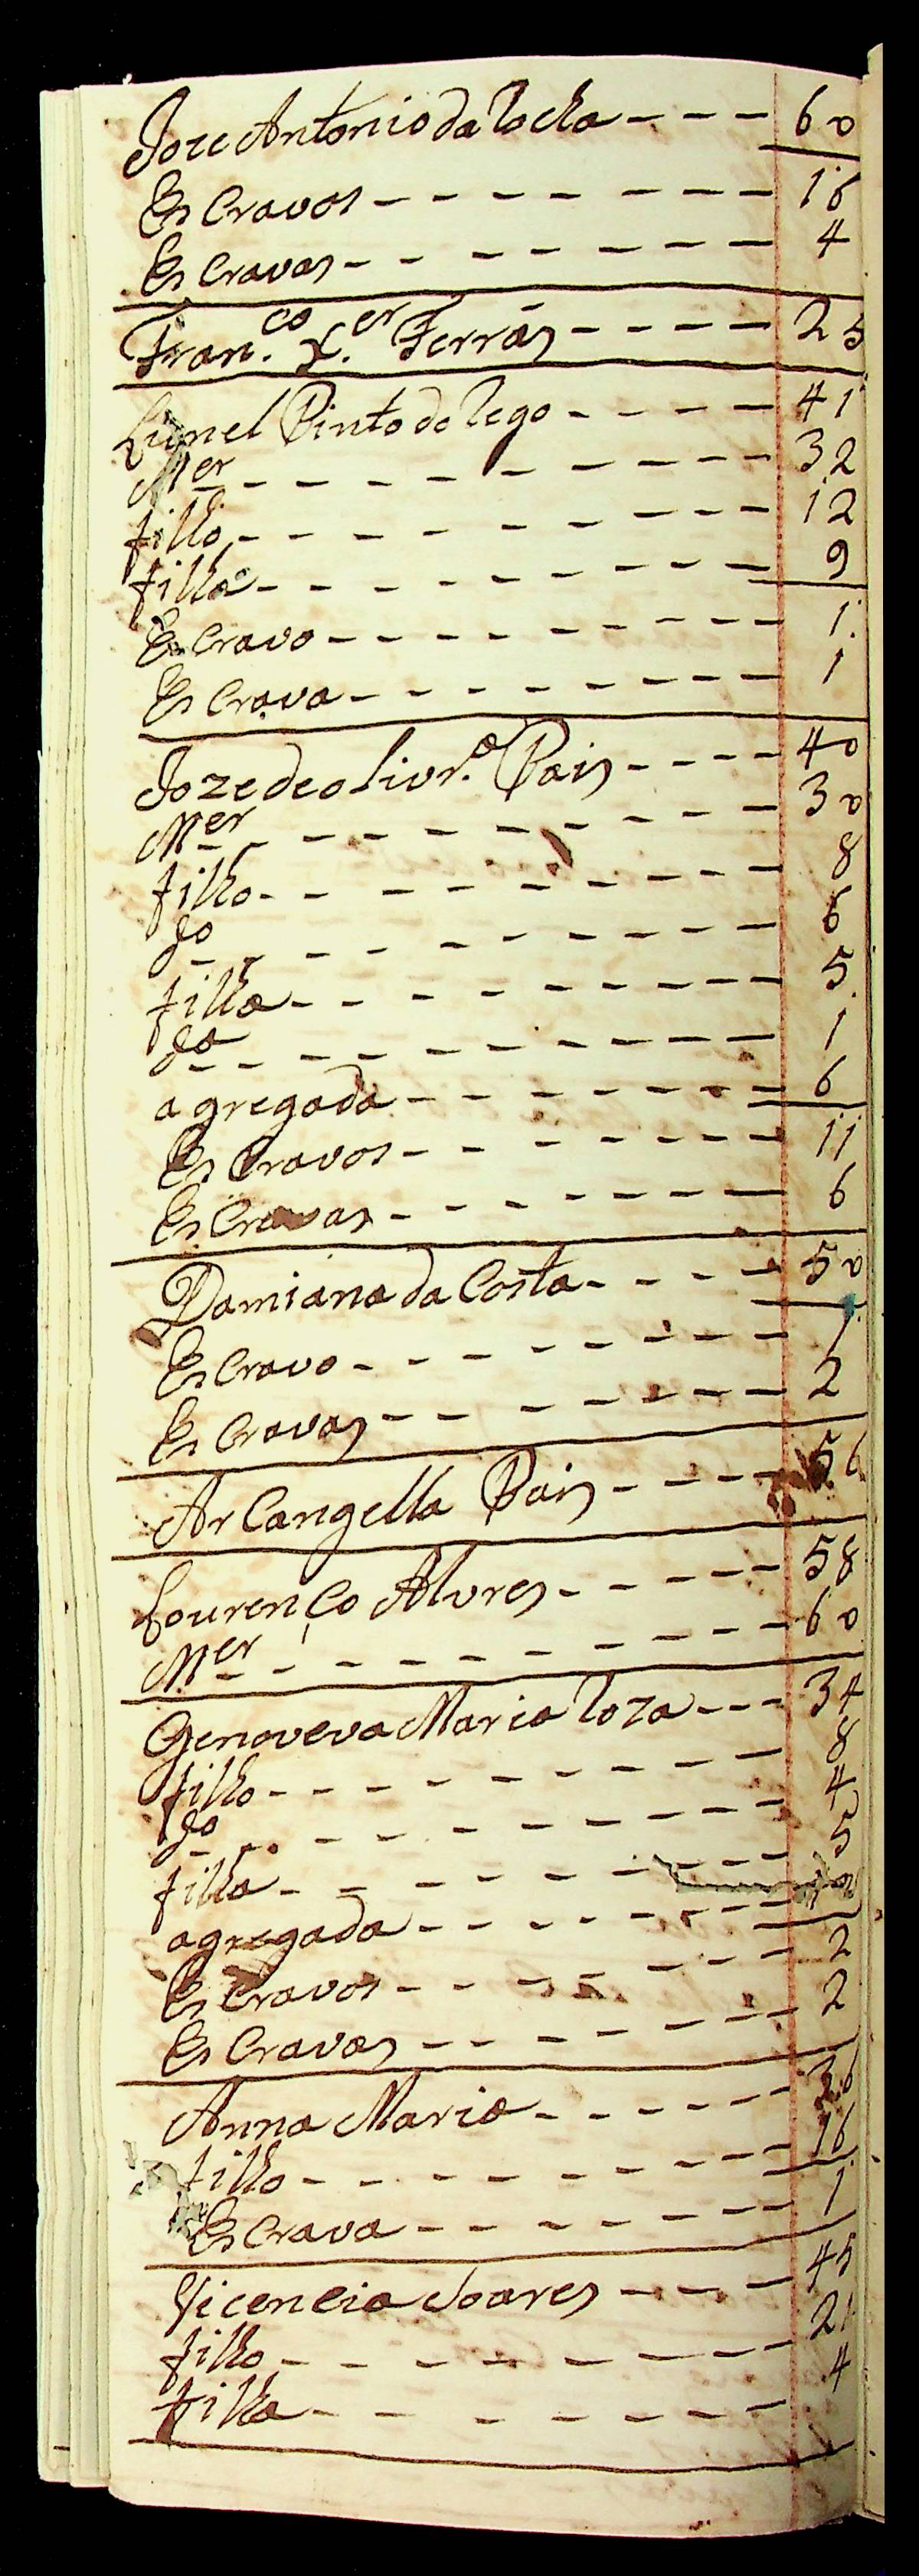 Joze Antonio da Rocha - - - 60
Es Cravos - - - - - - - - 16
Es Cravas - - - - - - - - 4
Fran.co X.er Ferrás - - - - 25
Lionel Pinto do Rego - - - - 41
Mer - - - - - - - - - - 32
filho - - - - - - - - - - 12
filha - - - - - - - - - - 9
Es Cravo - - - - - - - - - 1
Es Crava - - - - - - - - - 1
Joze de olivr.a Pais - - - - 40
Mer - - - - - - - - - - 30
filho - - - - - - - - - - 8
do - - - - - - - - - - 6
filha - - - - - - - - - 5
da - - - - - - - - - - 1
agregada - - - - - - - - 6
Es Cravos - - - - - - - - 11
Es Cravas - - - - - - - 6
Damiana da Costa - - - - 50
Es Cravo - - - - - - - - 1
Es Cravas - - - - - - - - 2
Ar Cangella Pais - - - - 56
Lourenço Alvres - - - - - 58
Mer - - - - - - - - - - 60
Genoveva Maria Roza - - - 34
filho - - - - - - - - - - 8
do - - - - - - - - - - 4
filha - - - - - - - - - 5
agregada - - - - - - - -
Es Cravos - - - - - - - - 2
Es Cravas - - - - - - - 2
Anna Maria - - - - - - 36
filho - - - - - - - - - - 16
Es Crava - - - - - - - - 1
Vicencia Soares - - - - 45
filho - - - - - - - - - 21
filha - - - - - - - - 4